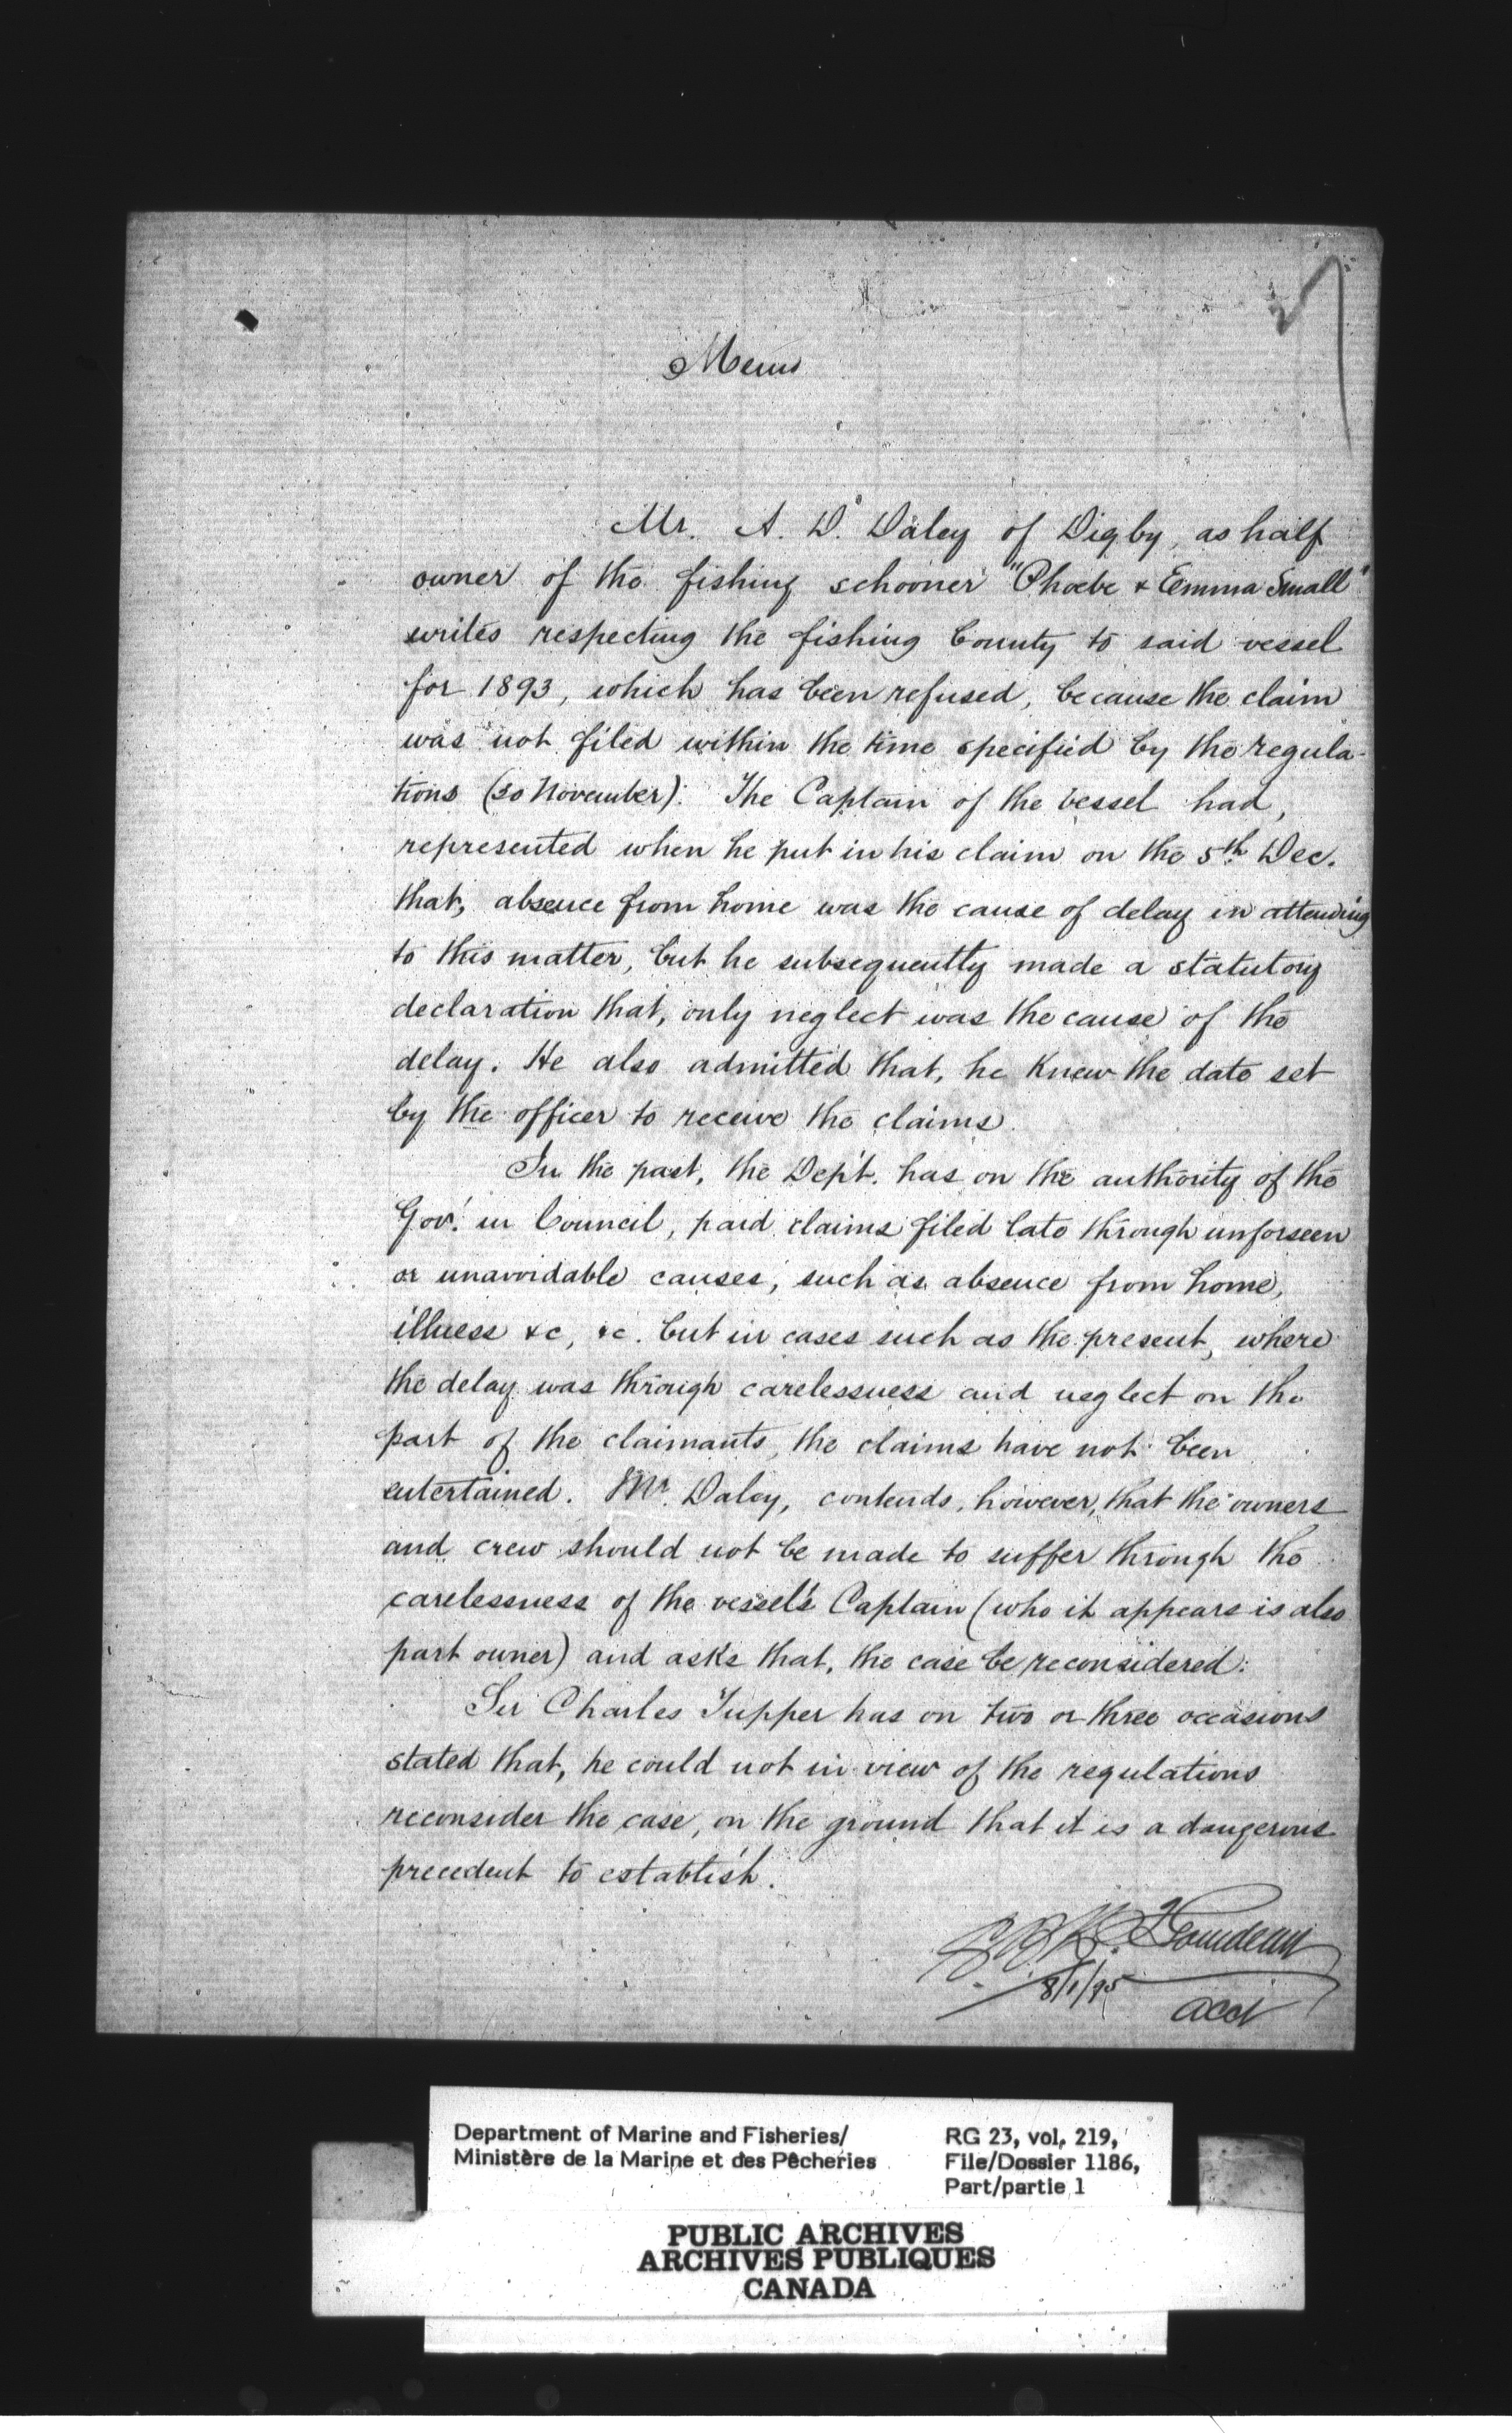 Memo
Mr. A. D. Daley of Digby, as half
owner of the fishing schooner "Phoebe & Emma Small"
writes respecting the fishing bounty to said vessel
for 1893, which has been refused, because the claim
was not filed within the time specified by the regula-
tions (30 November). The Captain of the vessel had,
represented when he put in his claim on the 5th Dec.
that, absence from home was the cause of delay in attending
to this matter, but he subsequently made a statutory
declaration that, only neglect was the cause of the
delay. He also admitted that, he knew the date set
by the officer to receive the claims.
In the past, the Dep't. has on the authority of the
Gov'. in Council, paid claims filed late through unforseen
or unavoidable causes, such as absence from home,
illness &c, &c. but in cases such as the present, where
the delay was through carelessness and neglect on the
part of the claimants, the claims have not been
entertained. Mr. Daley, contends, however, that the owners
and crew should not be made to suffer through the
carelessness of the vessel's Captain (who it appears is also
part owner) and asks that, the case be reconsidered.
Sir Charles Tupper has on two or three occasions
stated that, he could not in view of the regulations
reconsider the case, on the ground that it is a dangerous
precedent to establish.
8/1/95
acct
Department of Marine and Fisheries/
Ministère de la Marine et des Pêcheries
RG 23, vol. 219,
File/Dossier 1186,
Part/partie 1
PUBLIC ARCHIVES
ARCHIVES PUBLIQUES
CANADA